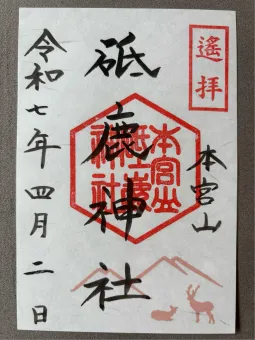 遙拝
本宮山
本宮山
砥鹿神社
砥鹿神社
令和七年四月二日